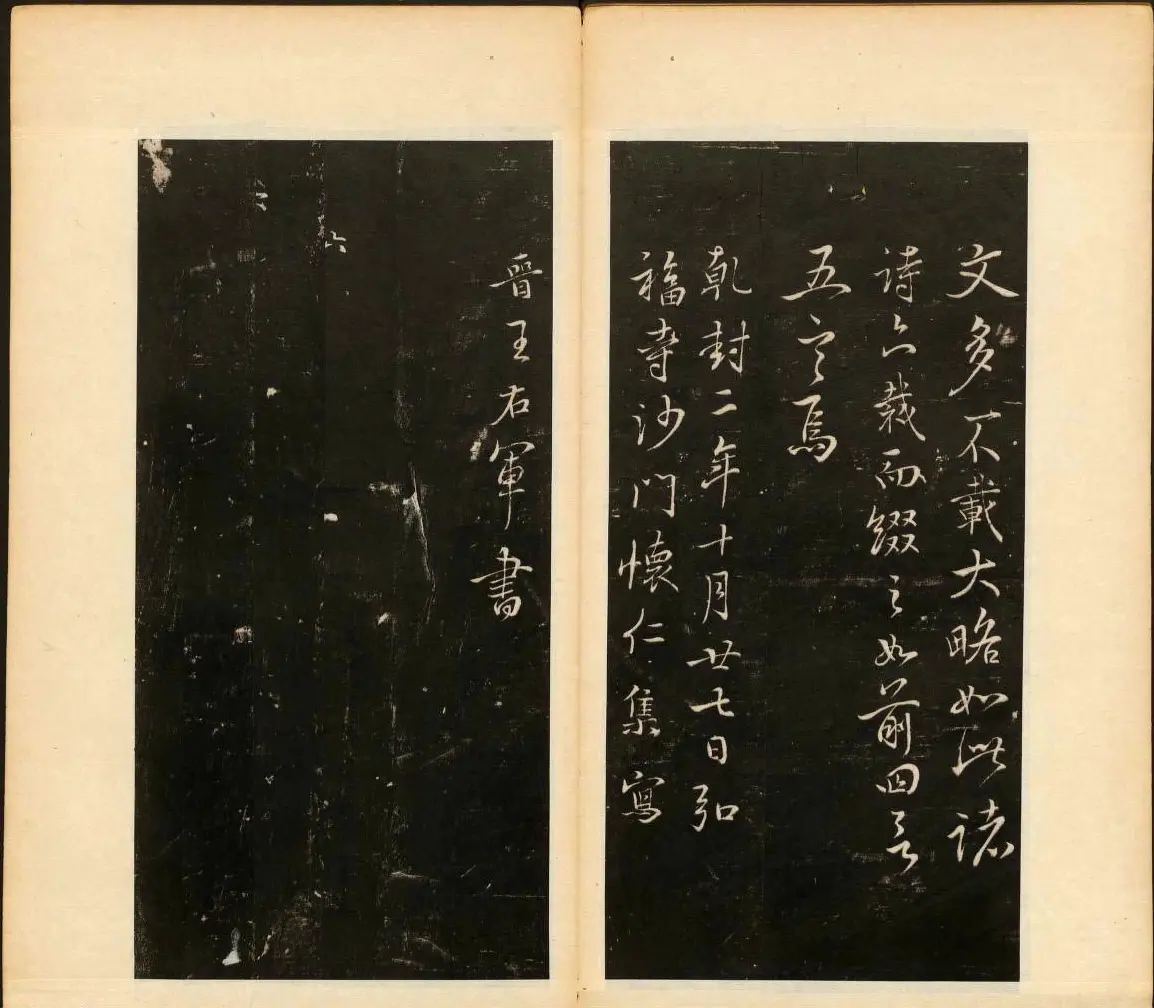 文多不載大略如此諸
詩亦載而綴之如前四言
五言焉
乹封二年十月廿七日弘
福寺沙門懷仁集寫
晉王右軍書